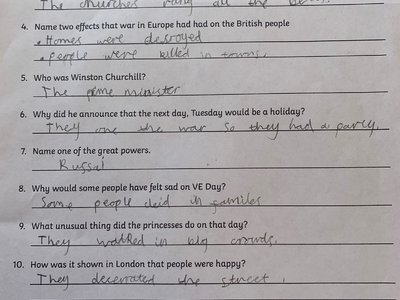 The churches rang all the bells.
4. Name two effects that war in Europe had had on the British people
• Homes were desroyed
• People were killed in towns.
5. Who was Winston Churchill?
The prme minister
6. Why did he announce that the next day, Tuesday would be a holiday?
They one the war so they had a party.
7. Name one of the great powers.
Russai
8. Why would some people have felt sad on VE Day?
Some people deid in familes
9. What unusual thing did the princesses do on that day?
They walked in big crowds.
10. How was it shown in London that people were happy?
They decerrated the street.